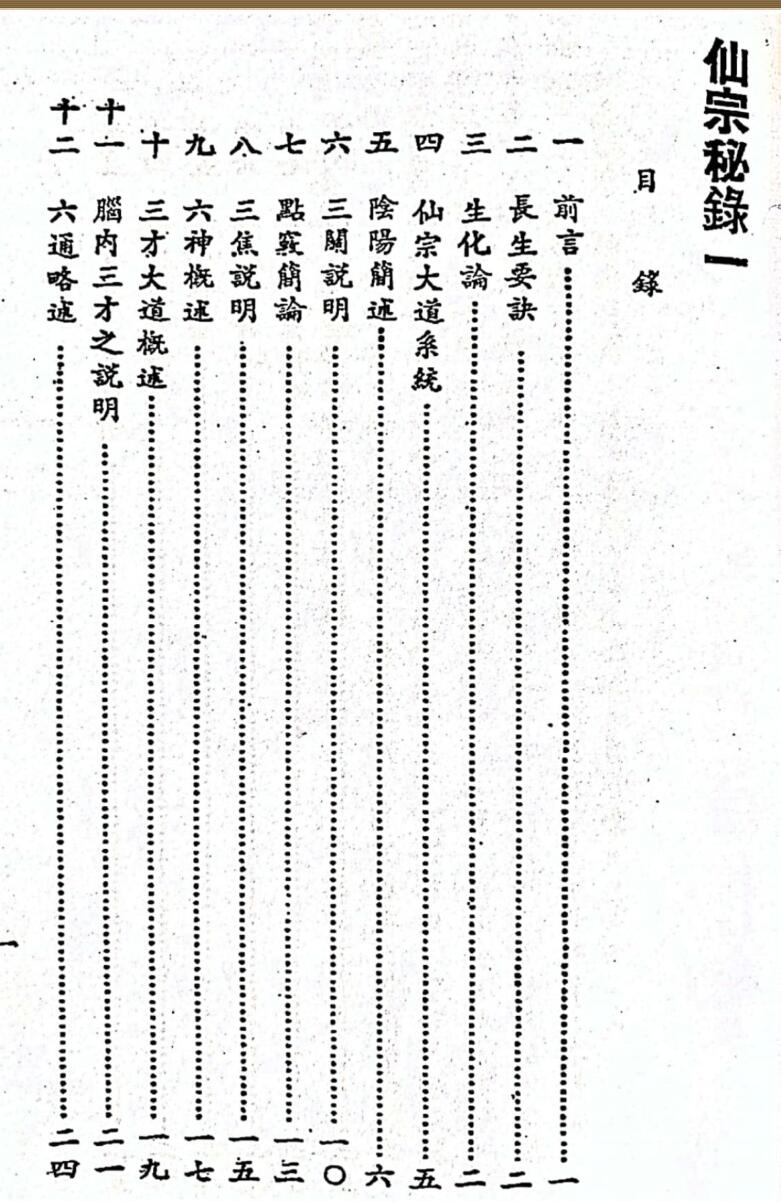 仙宗秘錄一
目錄
一 前言……一
二 長生要訣……二
三 生化論……二
四 仙宗大道系統……五
五 陰陽簡述……六
六 三關説明……一〇
七 點竅簡論……一三
八 三焦説明……一五
九 六神概述……一七
十 三才大道概述……一九
十一 腦内三才之説明……二一
十二 六通略述……二四
一